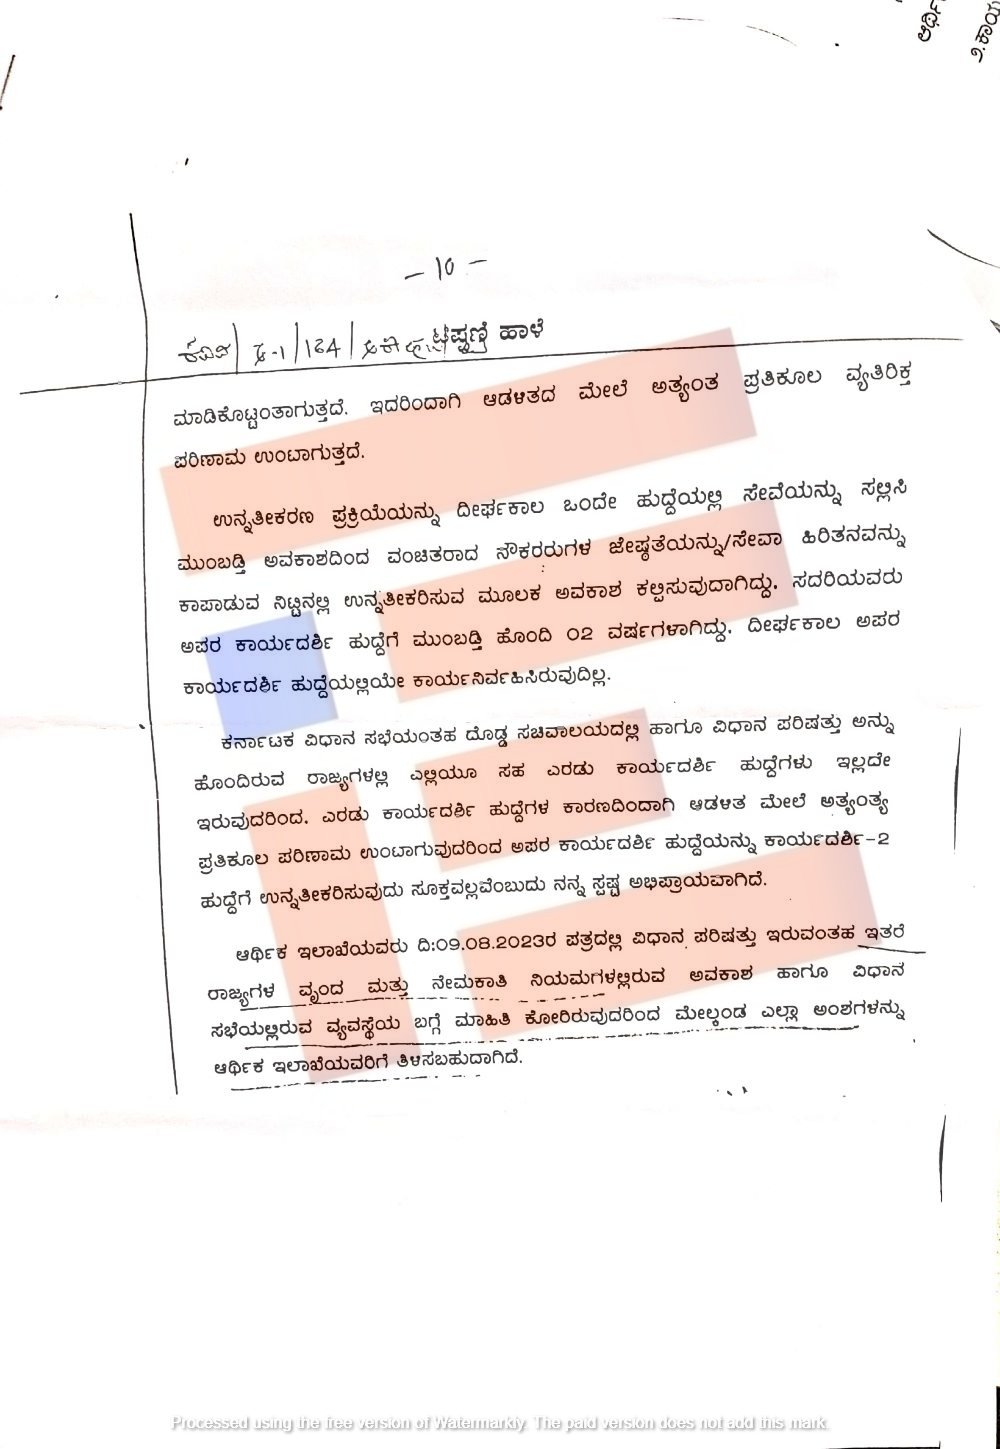 ಆರ್ಥಿ
೨.ಕಾಯ
– 10 –
ಕವಿಪ/ /164/ ಟಿಪ್ಪಣಿ ಹಾಳೆ
ಮಾಡಿಕೊಟ್ಟಂತಾಗುತ್ತದೆ. ಇದರಿಂದಾಗಿ ಆಡಳಿತದ ಮೇಲೆ ಅತ್ಯಂತ ಪ್ರತಿಕೂಲ ವ್ಯತಿರಿಕ್ತ
ಪರಿಣಾಮ ಉಂಟಾಗುತ್ತದೆ.
ಉನ್ನತೀಕರಣ ಪ್ರಕ್ರಿಯೆಯನ್ನು ದೀರ್ಘಕಾಲ ಒಂದೇ ಹುದ್ದೆಯಲ್ಲಿ ಸೇವೆಯನ್ನು ಸಲ್ಲಿಸಿ
ಮುಂಬಡ್ತಿ ಅವಕಾಶದಿಂದ ವಂಚಿತರಾದ ನೌಕರರುಗಳ ಜೇಷ್ಠತೆಯನ್ನು/ಸೇವಾ ಹಿರಿತನವನ್ನು
ಕಾಪಾಡುವ ನಿಟ್ಟಿನಲ್ಲಿ ಉನ್ನತೀಕರಿಸುವ ಮೂಲಕ ಅವಕಾಶ ಕಲ್ಪಿಸುವುದಾಗಿದ್ದು. ಸದರಿಯವರು
ಅಪರ ಕಾರ್ಯದರ್ಶಿ ಹುದ್ದೆಗೆ ಮುಂಬಡ್ತಿ ಹೊಂದಿ 02 ವರ್ಷಗಳಾಗಿದ್ದು. ದೀರ್ಘಕಾಲ ಅಪರ
ಕಾರ್ಯದರ್ಶಿ ಹುದ್ದೆಯಲ್ಲಿಯೇ ಕಾರ್ಯನಿರ್ವಹಿಸಿರುವುದಿಲ್ಲ.
ಕರ್ನಾಟಕ ವಿಧಾನ ಸಭೆಯಂತಹ ದೊಡ್ಡ ಸಚಿವಾಲಯದಲ್ಲಿ ಹಾಗೂ ವಿಧಾನ ಪರಿಷತ್ತು ಅನ್ನು
ಹೊಂದಿರುವ ರಾಜ್ಯಗಳಲ್ಲಿ ಎಲ್ಲಿಯೂ ಸಹ ಎರಡು ಕಾರ್ಯದರ್ಶಿ ಹುದ್ದೆಗಳು ಇಲ್ಲದೇ
ಇರುವುದರಿಂದ. ಎರಡು ಕಾರ್ಯದರ್ಶಿ ಹುದ್ದೆಗಳ ಕಾರಣದಿಂದಾಗಿ ಆಡಳಿತ ಮೇಲೆ ಅತ್ಯಂತ್ಯ
ಪ್ರತಿಕೂಲ ಪರಿಣಾಮ ಉಂಟಾಗುವುದರಿಂದ ಅಪರ ಕಾರ್ಯದರ್ಶಿ ಹುದ್ದೆಯನ್ನು ಕಾರ್ಯದರ್ಶಿ-2
ಹುದ್ದೆಗೆ ಉನ್ನತೀಕರಿಸುವುದು ಸೂಕ್ತವಲ್ಲವೆಂಬುದು ನನ್ನ ಸ್ಪಷ್ಟ ಅಭಿಪ್ರಾಯವಾಗಿದೆ.
ಆರ್ಥಿಕ ಇಲಾಖೆಯವರು ದಿ:09.08.2023ರ ಪತ್ರದಲ್ಲಿ ವಿಧಾನ ಪರಿಷತ್ತು ಇರುವಂತಹ ಇತರೆ
ರಾಜ್ಯಗಳ ವೃಂದ ಮತ್ತು ನೇಮಕಾತಿ ನಿಯಮಗಳಲ್ಲಿರುವ ಅವಕಾಶ ಹಾಗೂ ವಿಧಾನ
ಸಭೆಯಲ್ಲಿರುವ ವ್ಯವಸ್ಥೆಯ ಬಗ್ಗೆ ಮಾಹಿತಿ ಕೋರಿರುವುದರಿಂದ ಮೇಲ್ಕಂಡ ಎಲ್ಲಾ ಅಂಶಗಳನ್ನು
ಆರ್ಥಿಕ ಇಲಾಖೆಯವರಿಗೆ ತಿಳಿಸಬಹುದಾಗಿದೆ.
Processed using the free version of Watermarkly. The paid version does not add this mark.